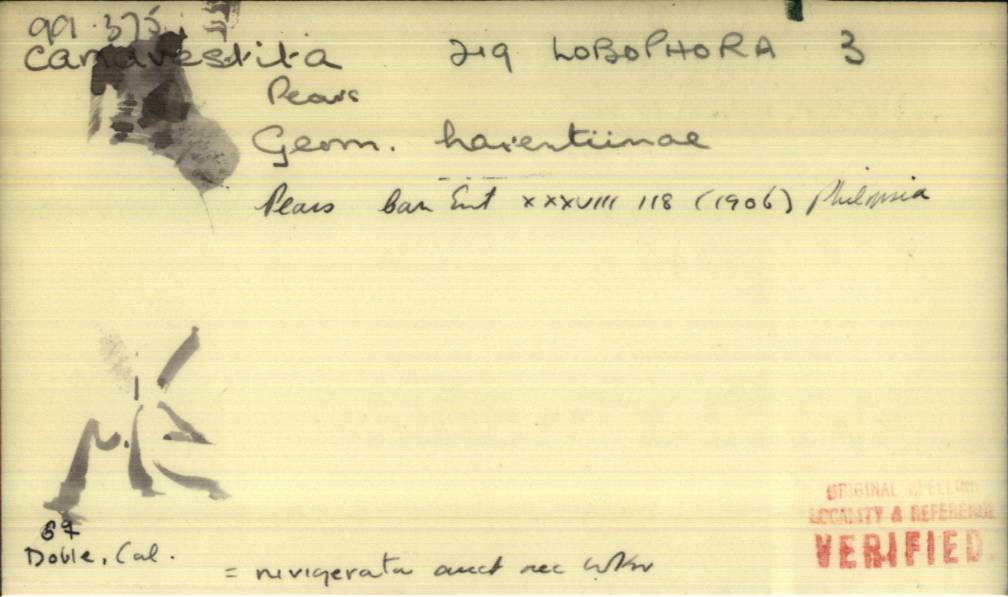 991.375
canavestita 219 LOBOPHORA 3
Pears
Geom. harentiinae
Pears Can Ent XXXVIII 118 (1906) Philopsia
69
Doble, Cal.
= nivigerata auct nec Wkr
ORIGINAL SPELLING
LOCALITY & REFERENCE
VERIFIED